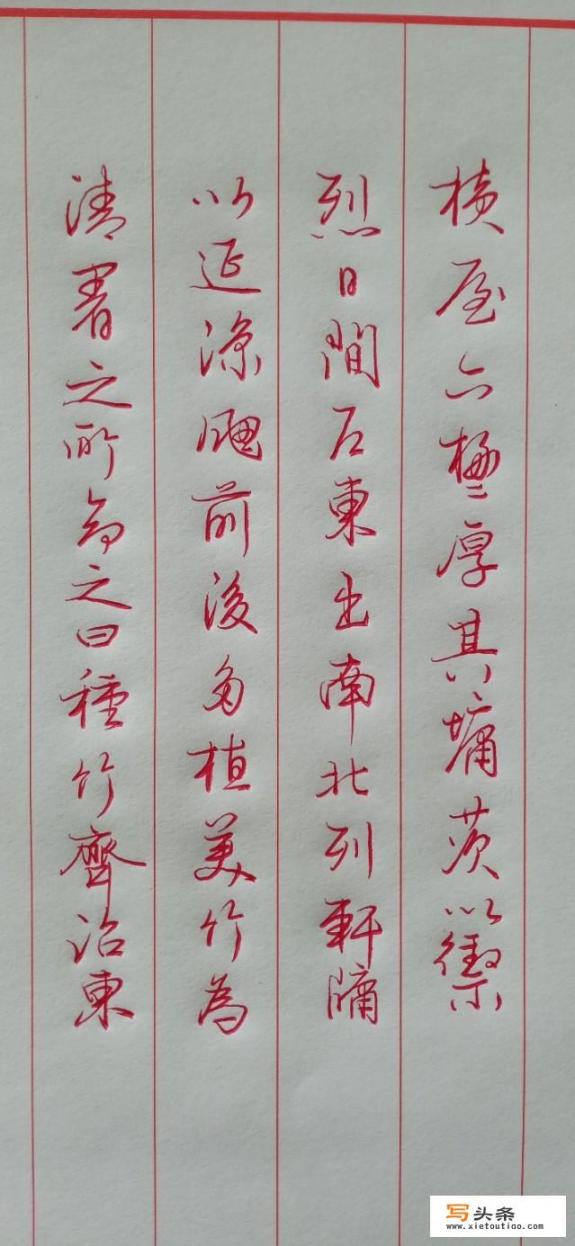 横屋六楹厚其墉茨以禦
烈日開户東出南北列軒牖
以延涼颸前後多植美竹為
清暑之所命之曰種竹齋沼東
写头条
www.xietoutiao.com